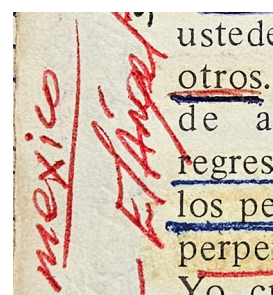 mexico
ustede
otros.
de a
regres
los pe
perpe
Yo cr